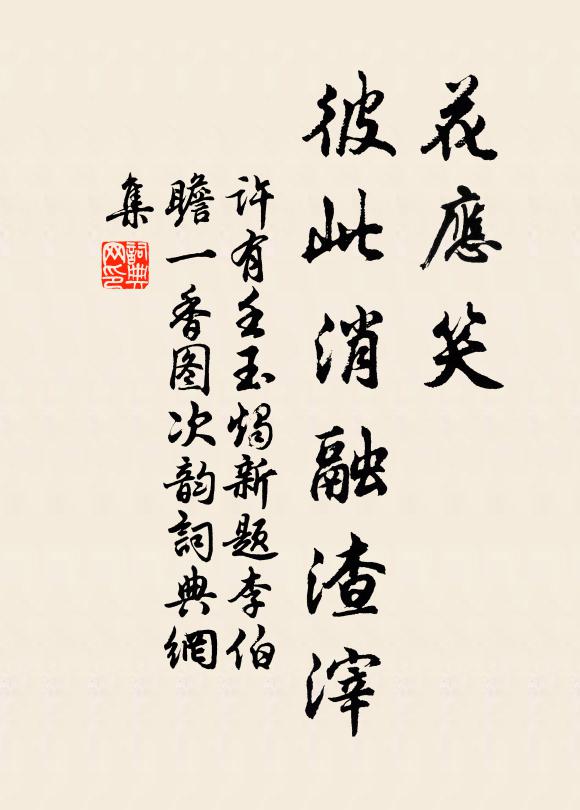 花應笑
彼此消融渣滓
许有壬玉燭新题李伯
瞻一香图次韵詞典網
集
詞典
网印